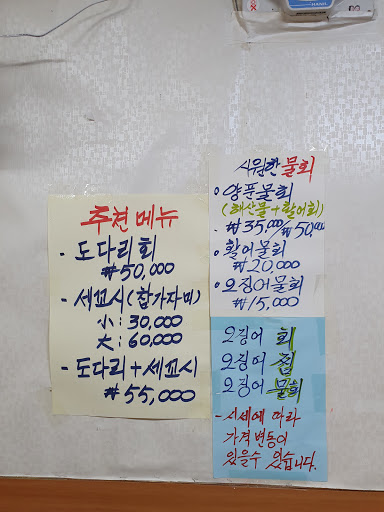 추천메뉴
- 도다리회
₩50,000
- 세꼬시(합가자미)
小: 30,000
大: 60,000
- 도다리+세꼬시
₩55,000
시원한 물회
• 양푼물회
(해산물+활어회)
- ₩35,000/₩50,000
• 활어물회
₩20,000
• 오징어물회
₩15,000
오징어 회
오징어 찜
오징어 물회
- 시세에 따라
가격변동이
있을수 있습니다.